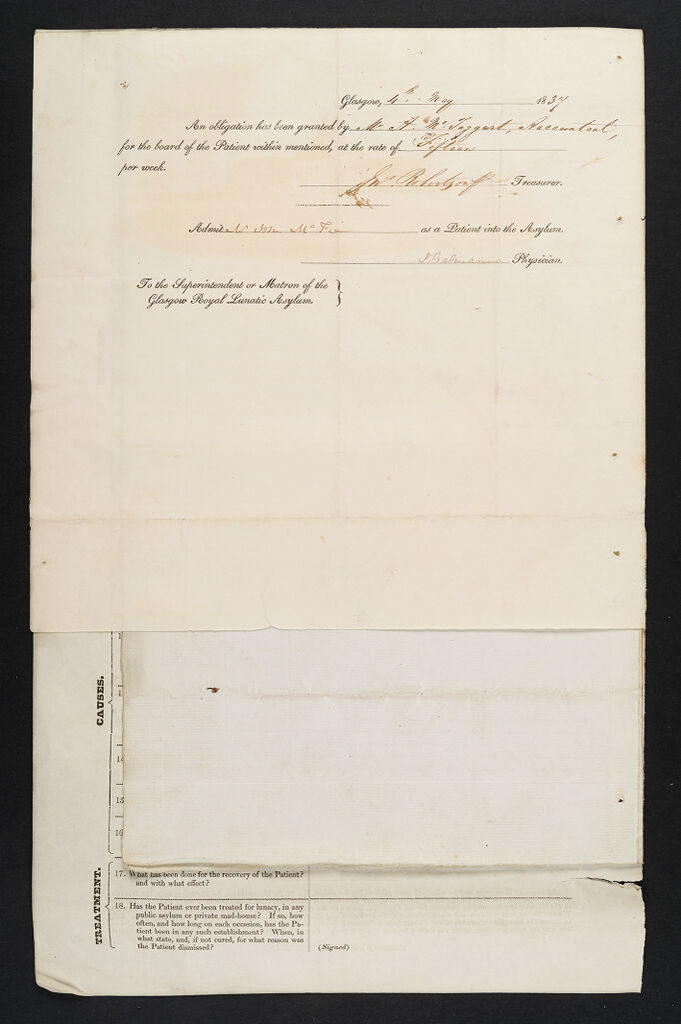 Glasgow, 4th May 1837
An obligation has been granted by Mr A. McTaggart, Accountant,
for the board of the Patient within mentioned, at the rate of Fifteen
per week.
Jno Robertson Treasurer.
Admit Mc as a Patient into the Asylum.
Physician.
To the Superintendent or Matron of the
Glasgow Royal Lunatic Asylum.
CAUSES.
14
15
16
TREATMENT.
17. What has been done for the recovery of the Patient?
and with what effect?
18. Has the Patient ever been treated for lunacy, in any
public asylum or private mad-house? If so, how
often, and how long on each occasion, has the Pa-
tient been in any such establishment? When, in
what state, and, if not cured, for what reason was
the Patient dismissed?
(Signed)